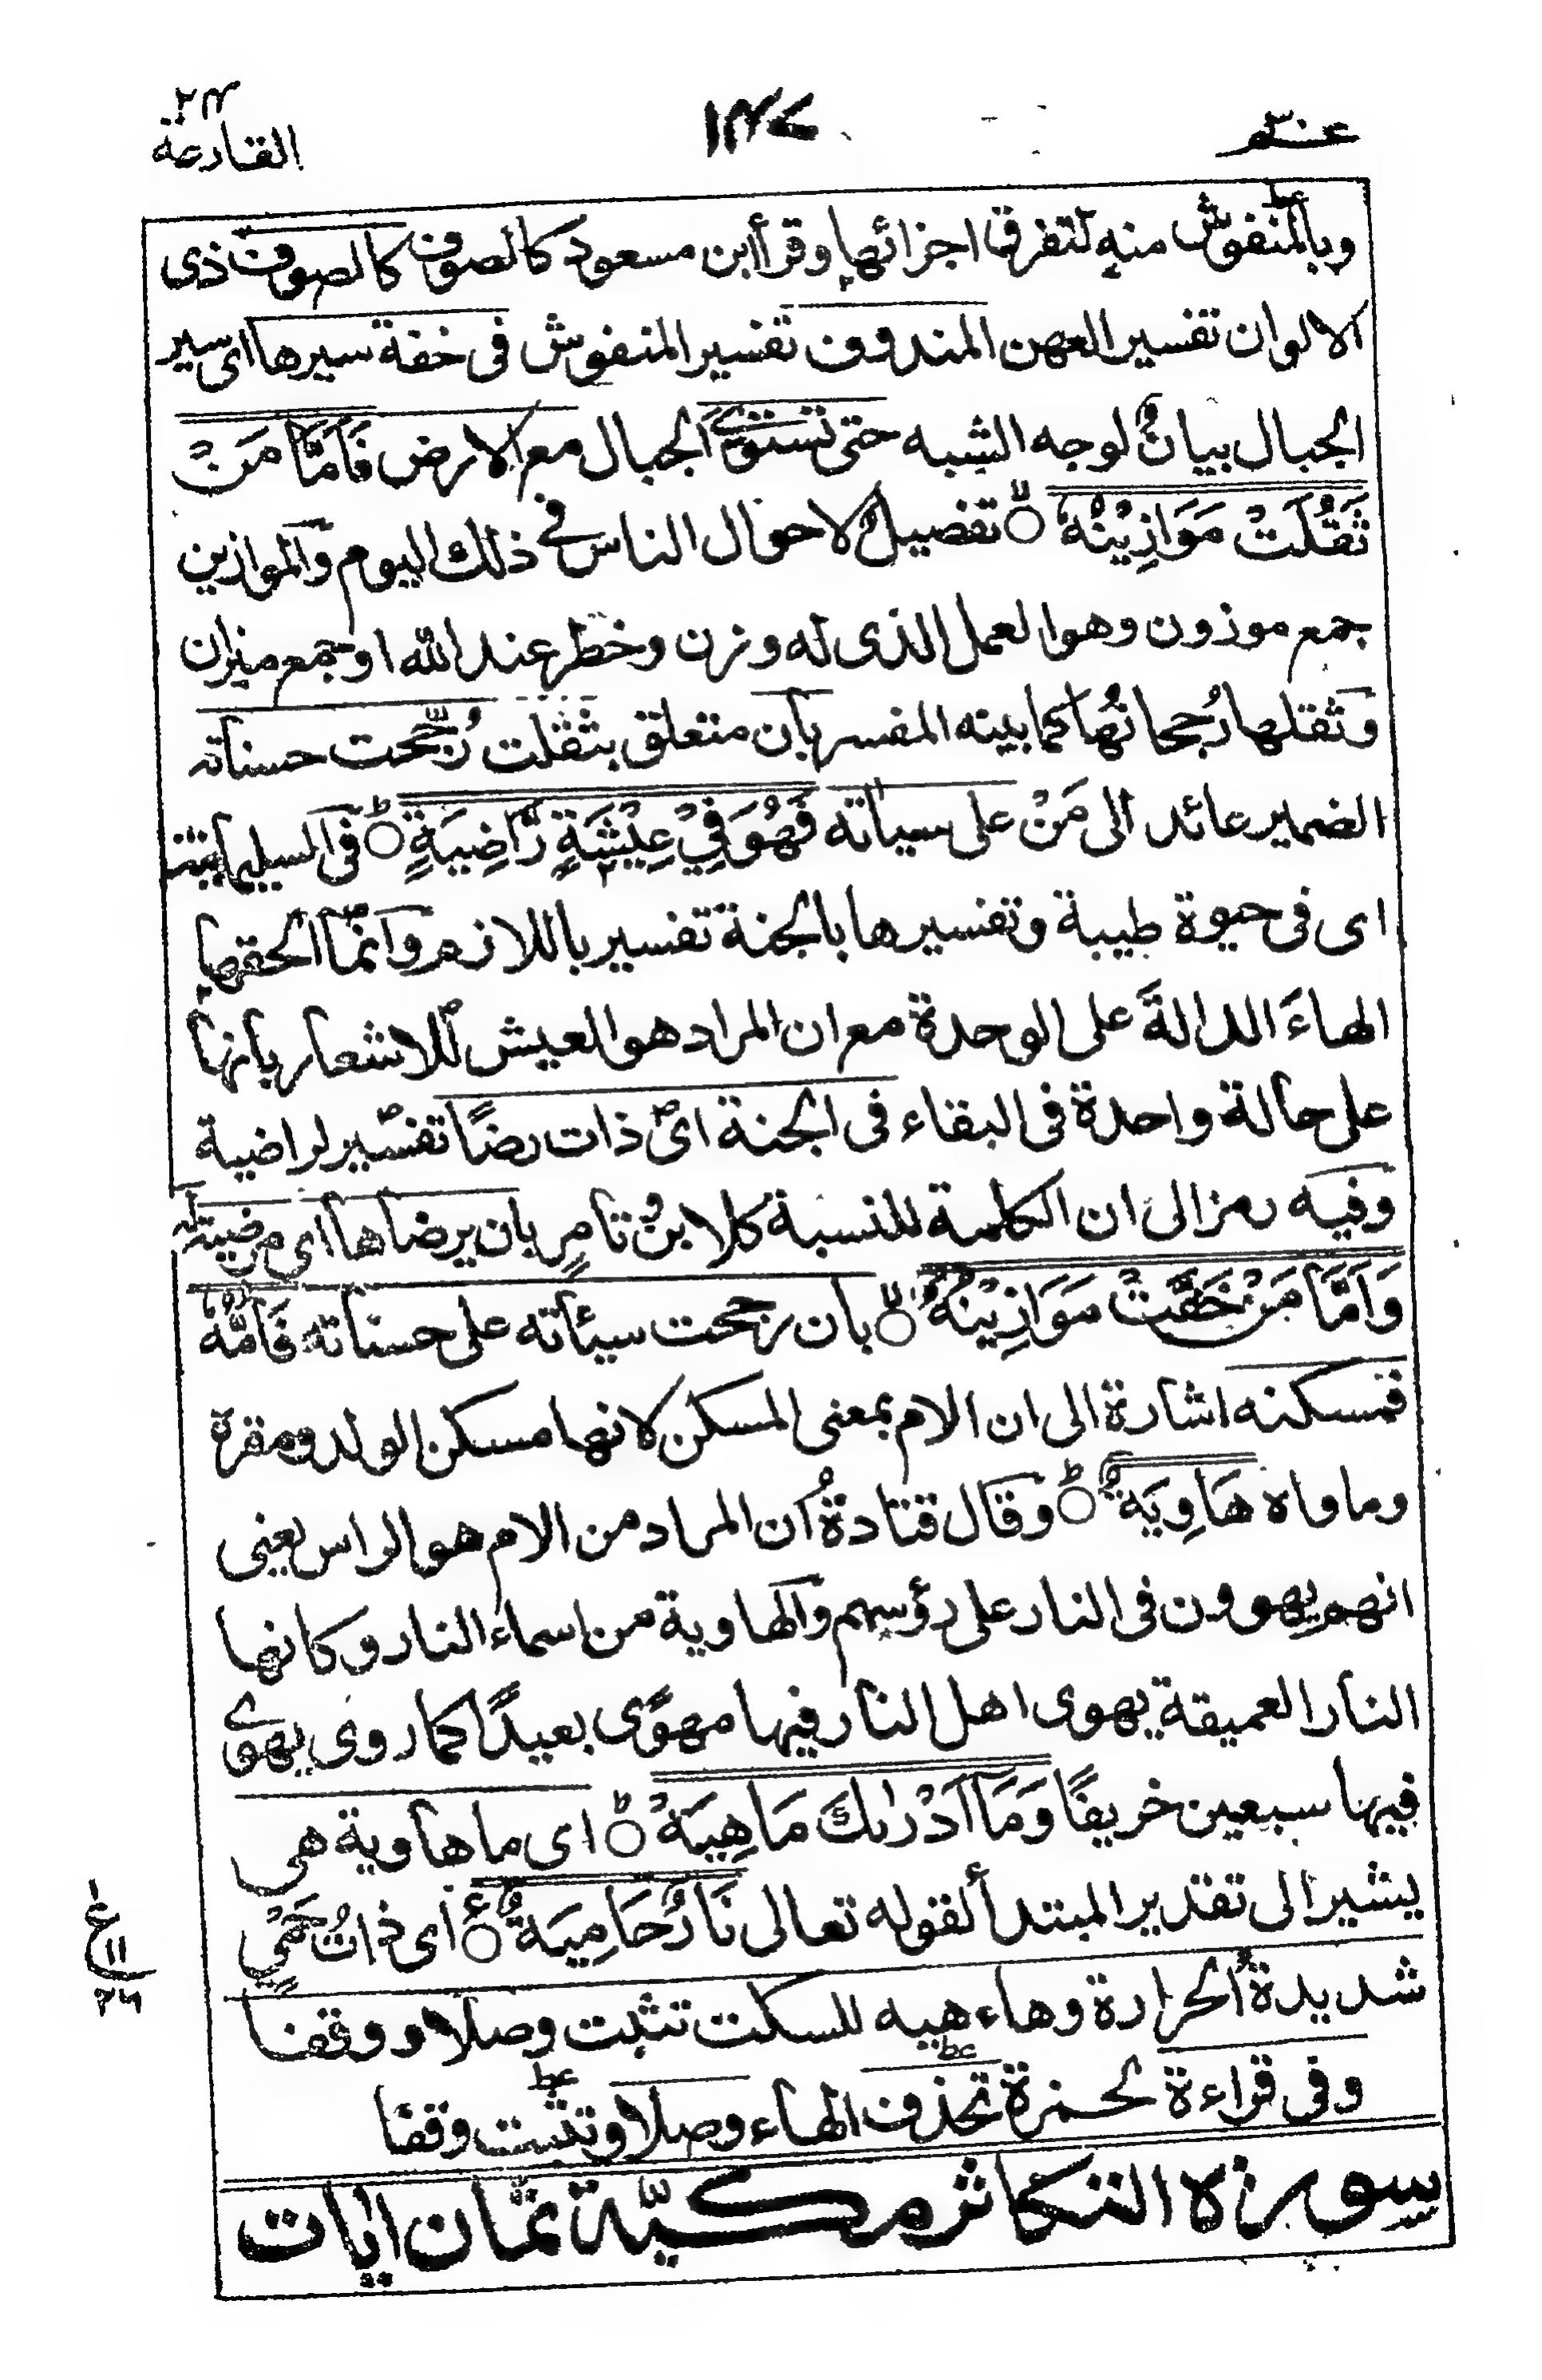 عـــم ۳۰
۱۴۷
۲۴
القارعة
وبالمنفوش منه لتفرق اجزائها وقرأ ابن مسعود كالصوف كالصوف ذى
الالوان تفسير العهن المندوف تفسير المنفوش فى خفة سيرها اى سير
الجبال بيانٌ لوجه الشبه حتى تستوى الجبال مع الارض فَاَمَّا مَنْ
ثَقُلَتْ مَوَازِيْنُهٗ ۙ تفصيلٌ لاحوال الناس فى ذلك اليوم والموازين
جمع موزون وهو العمل الذى له وزن وخطر عند الله اوجمع ميزان
وثقلها رُجحانُها كما بينه المفسر بان متعلق بثقلت رُجّحت حسناته
الضمير عائد الى مَنْ على سيئاته فَهُوَ فِيْ عِيْشَةٍ رَّاضِيَةٍ ؕ فى
اى فى حيوة طيبة وتفسيرها بالجنة تفسير باللازم وانما الحقها
الهاءَ الدالةَ على الوحدة مع ان المراد هو العيش للاشعار بانها
على حالة واحدة فى البقاء فى الجنة اى ذات رضًا تفسير لراضية
وفيه رمز الى ان الكلمة للنسبة كلابنٌ وتامرٍ بان يرضاها اى مرضية له
وَاَمَّا مَنْ خَفَّتْ مَوَازِيْنُهٗ ۙ بان رجحت سيئاته على حسناته فَاُمُّهٗ
فمسكنه اشارة الى ان الام بمعنى المسكن لانها مسكن الولد ومقره
وماواه هَاوِيَةٌ ؕ وقال قتادةُ ان المراد من الام هو الراس يعنى
انهم يهوون فى النار على رؤسهم والهاوية من اسماء النار وكانها
النار العميقة يهوى اهل النار فيها مهوًى بعيدًا كما روى يهوى
فيها سبعين خريفًا وَمَآ اَدْرٰىكَ مَاهِيَهْ ؕ اى ما هاوية هى
يشير الى تقدير المبتدأ لقوله تعالى نَارٌ حَامِيَةٌ ۧ اى ذاتُ حَمْىٍ
شديدةُ الحرارة وهاء هيه للسكت تثبت وصلا و وقفا
وفى قراءة لحمزة تحذف الهاء وصلا وتثبت وقفا
سورة التكاثر مكيّة ثمان ايات
ع
۱۱
۲۶